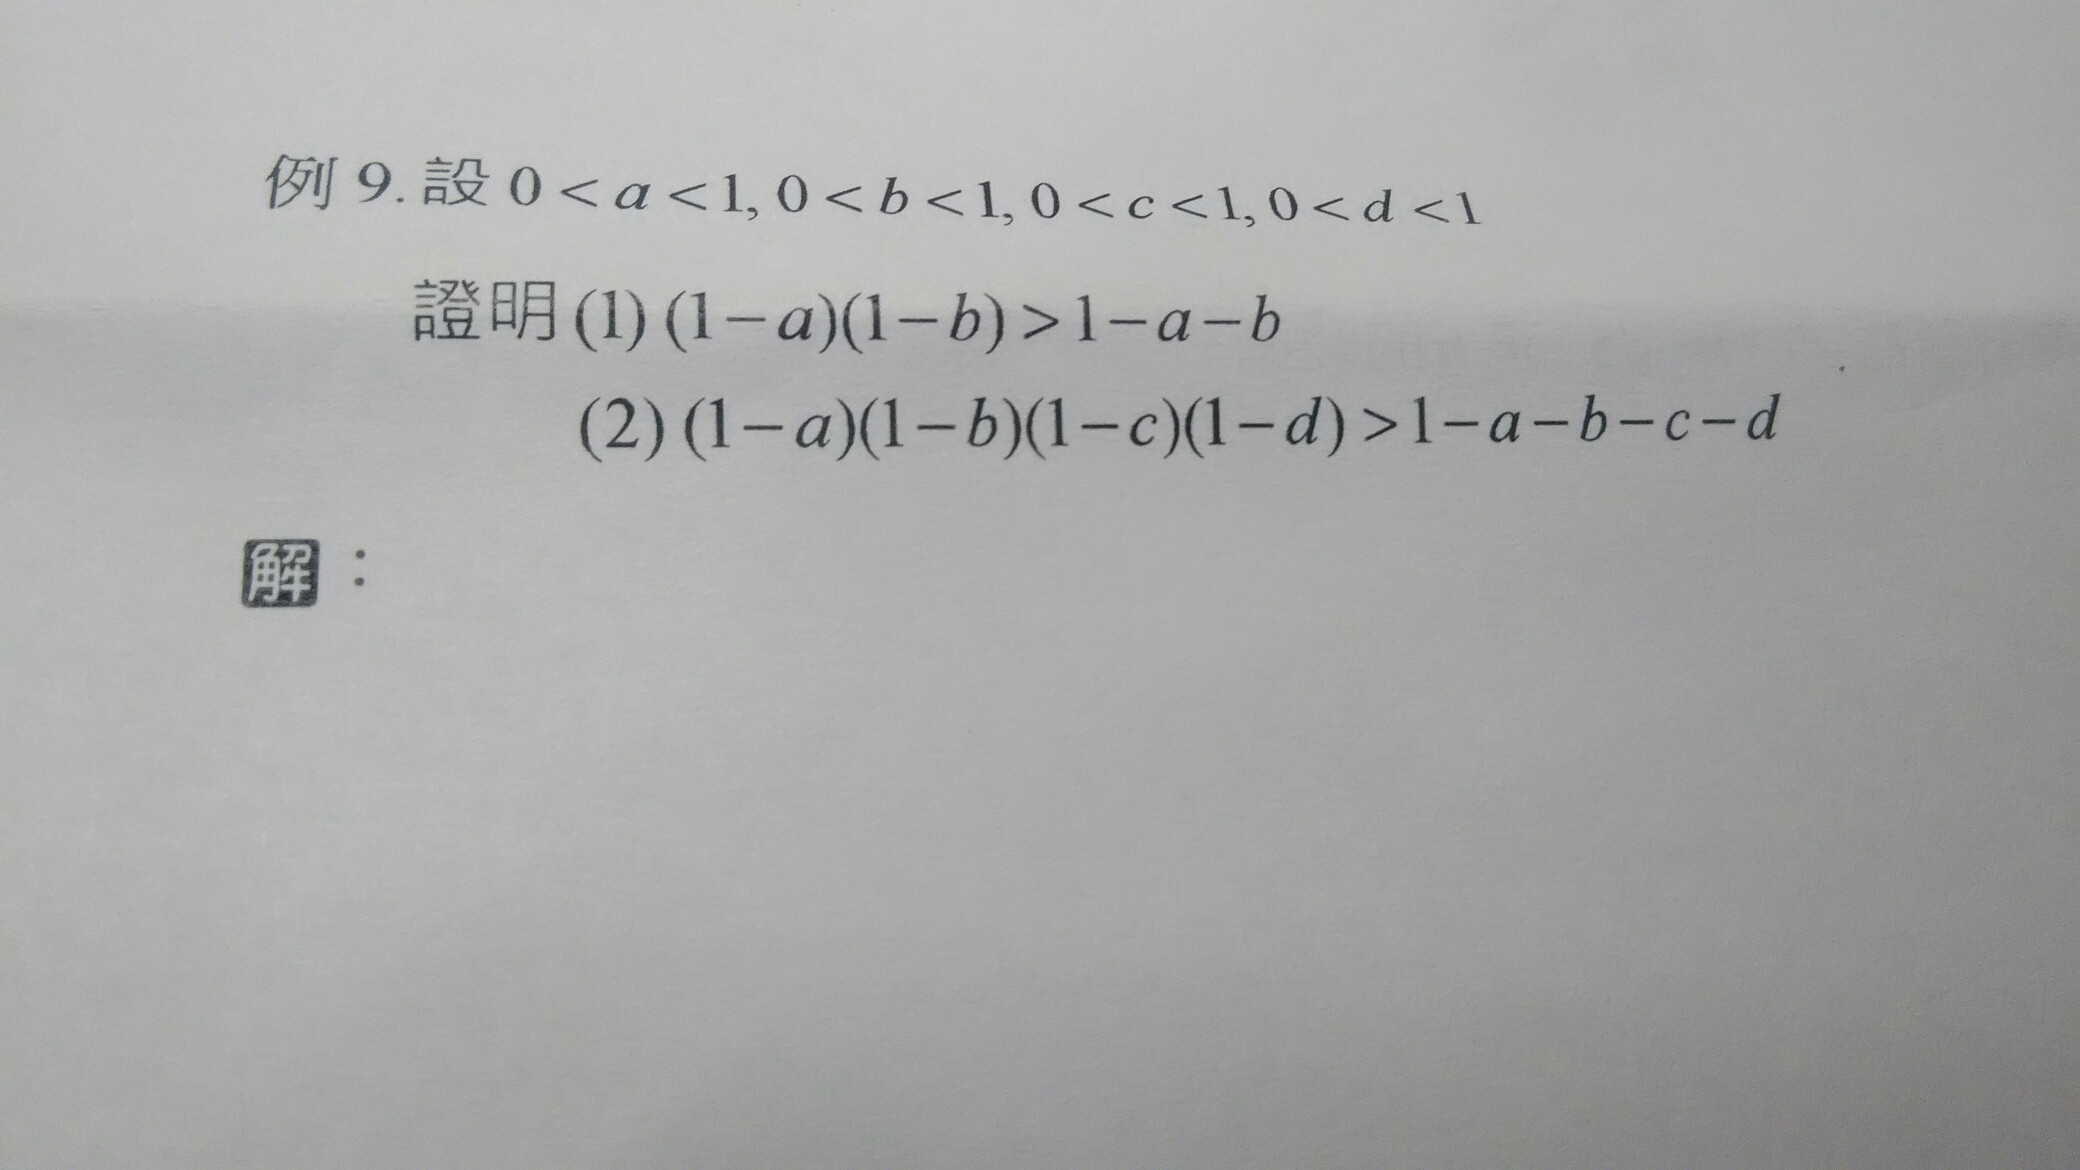 例 9. 設 0 < a < 1, 0 < b < 1, 0 < c < 1, 0 < d < 1
證明 (1) (1－a)(1－b) > 1－a－b
(2) (1－a)(1－b)(1－c)(1－d) > 1－a－b－c－d
解：